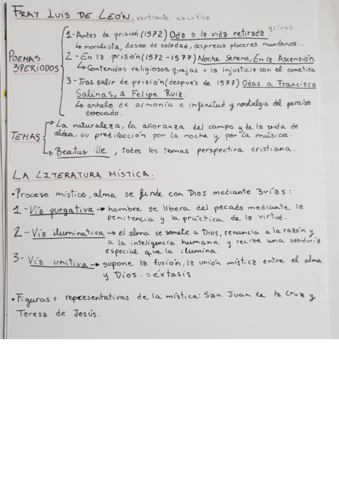 FRAY LUIS DE LEÓN, vertiente ascética
POEMAS. 3PERIODOS
1- Antes de prisión (1572) Oda a la vida retirada.
↳ moralista, deseo de soledad, desprecio placeres mundanos...
2- En la prisión (1572-1577) Noche Serena, En la Ascensión.
↳ Contenidos religiosos, quejas = la injusticia con él cometida
3- Tras salir de prisión (después de 1577) Odas a Francisco
Salinas, a Felipe Ruiz.
↳ anhelo de armonía e infinitud y nostalgia del paraíso
TEMAS
↳ La naturaleza, la añoranza del campo y de la vida de
aldea, su predilección por la noche y por la música.
↳ Beatus ille, todos los temas perspectiva cristiana.
LA LITERATURA MÍSTICA.
• Proceso místico, alma se funde con Dios mediante 3 vías:
1- Vía purgativa → hombre se libera del pecado mediante la
penitencia y la práctica de la virtud.
2- Vía iluminativa → el alma se somete a Dios, renuncia a la razón y
a la inteligencia humana y recibe una sabiduría
especial que la ilumina.
3- Vía unitiva → supone la fusión, la unión mística entre el alma
y Dios. = éxtasis
• Figuras + representativas de la mística: San Juan de la Cruz y
Teresa de Jesús.